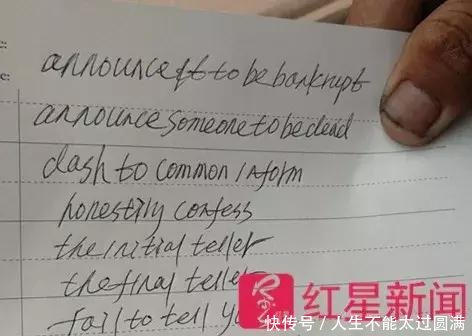 announce it to be bankrupt
announce someone to be dead
dash to common inform
honestily confess
the initial teller
the final teller
fail to tell
红星新闻
快传号/人生不能太过圆满